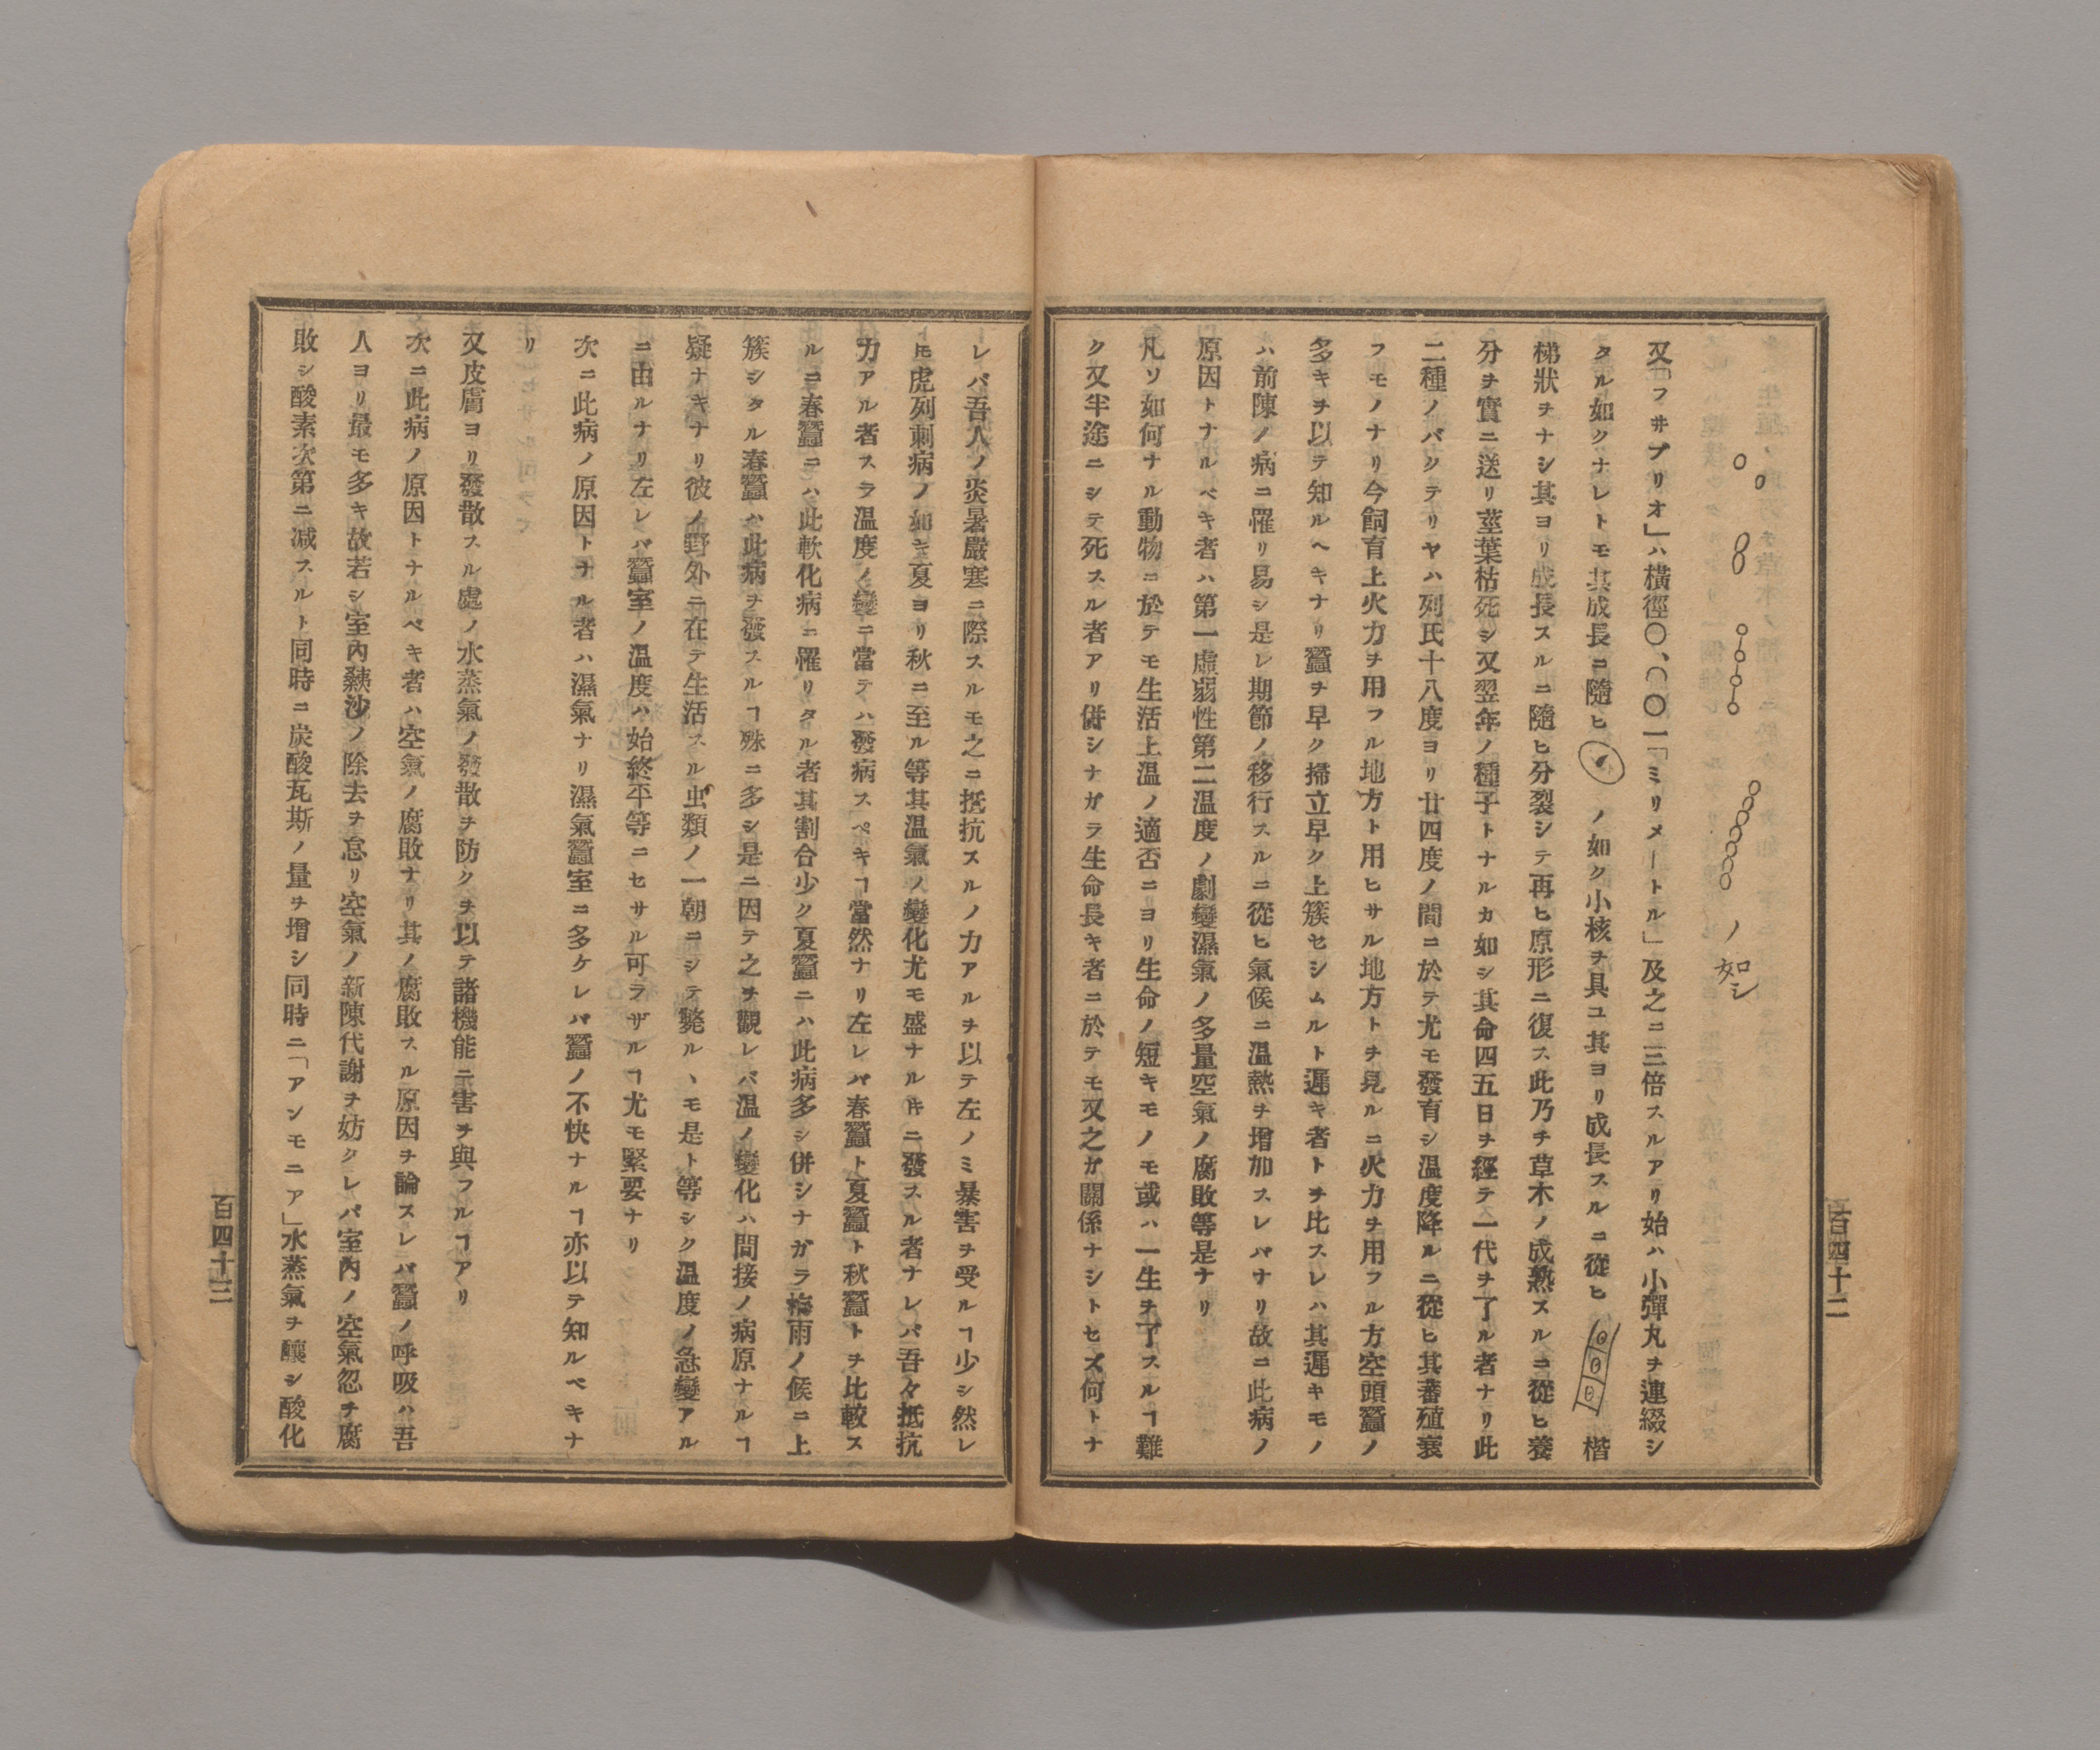 ノ如シ
又「フヰブリオ」ハ横徑〇、〇〇一「ミリメートル」及之ニ二三倍スルアリ始ハ小彈丸ヲ連綴シ
タル如クナレトモ其成長ニ隨ヒ ノ如ク小核ヲ具ユ其ヨリ成長スルニ從ヒ 楷
梯狀ヲナシ其ヨリ成長スルニ隨ヒ分裂シテ再ヒ原形ニ復ス此乃チ草木ノ成熟スルニ從ヒ養
分ヲ實ニ送リ莖葉枯死シ又翌年ノ種子トナルカ如シ其命四五日ヲ經テ一代ヲ了ル者ナリ此
二種ノバクテリヤハ列氏十八度ヨリ廿四度ノ間ニ於テ尤モ發育シ温度降ルニ從ヒ其蕃殖衰
フモノナリ今飼育上火力ヲ用フル地方ト用ヒサル地方トヲ見ルニ火力ヲ用フル方空頭蠶ノ
多キヲ以テ知ルヘキナリ蠶ヲ早ク掃立早ク上簇セシムルト遲キ者トヲ比スレハ其遲キモノ
ハ前陳ノ病ニ罹リ易シ是レ期節ノ移行スルニ從ヒ氣候ニ温熱ヲ增加スレバナリ故ニ此病ノ
原因トナルベキ者ハ第一虛弱性第二温度ノ劇變濕氣ノ多量空氣ノ腐敗等是ナリ
凡ソ如何ナル動物ニ於テモ生活上温ノ適否ニヨリ生命ノ短キモノモ或ハ一生ヲ了スルヿ難
ク又半途ニシテ死スル者アリ併シナガラ生命長キ者ニ於テモ又之ガ關係ナシトセズ何トナ
百四十二
レバ吾人ノ炎暑嚴寒ニ際スルモ之ニ抵抗スルノ力アルヲ以テ左ノミ暴害ヲ受ルヿ少シ然レ
𪜈虎列刺病ノ如キ夏ヨリ秋ニ至ル等其温氣ノ變化尤モ盛ナル𪜈ニ發スル者ナレバ吾々抵抗
力アル者スラ温度ノ變ニ當テハ發病スベキヿ當然ナリ左レバ春蠶ト夏蠶ト秋蠶トヲ比較ス
ルニ春蠶ニハ此軟化病ニ罹リタル者其割合少ク夏蠶ニハ此病多シ併シナガラ梅雨ノ候ニ上
簇シタル春蠶ハ此病ヲ發スルヿ殊ニ多シ是ニ因テ之ヲ觀レバ温ノ變化ハ間接ノ病原ナルヿ
疑ナキナリ彼ノ野外ニ在テ生活スル虫類ノ一朝ニシテ斃ルヽモ是ト等シク温度ノ急變アル
ニ由ルナリ左レバ蠶室ノ温度ハ始終平等ニセサル可ラザルヿ尤モ緊要ナリ
次ニ此病ノ原因トナル者ハ濕氣ナリ濕氣蠶室ニ多ケレバ蠶ノ不快ナルヿ亦以テ知ルベキナ
リ
又皮膚ヨリ發散スル處ノ水蒸氣ノ發散ヲ防クヲ以テ諸機能ニ害ヲ與フルヿアリ
次ニ此病ノ原因トナルベキ者ハ空氣ノ腐敗ナリ其ノ腐敗スル原因ヲ論スレバ蠶ノ呼吸ハ吾
人ヨリ最モ多キ故若シ室內 沙ノ除去ヲ怠リ空氣ノ新陳代謝ヲ妨クレバ室內ノ空氣忽チ腐
敗シ酸素次第ニ減スルト同時ニ炭酸瓦斯ノ量ヲ增シ同時ニ「アンモニア」水蒸氣ヲ釀シ酸化
百四十三